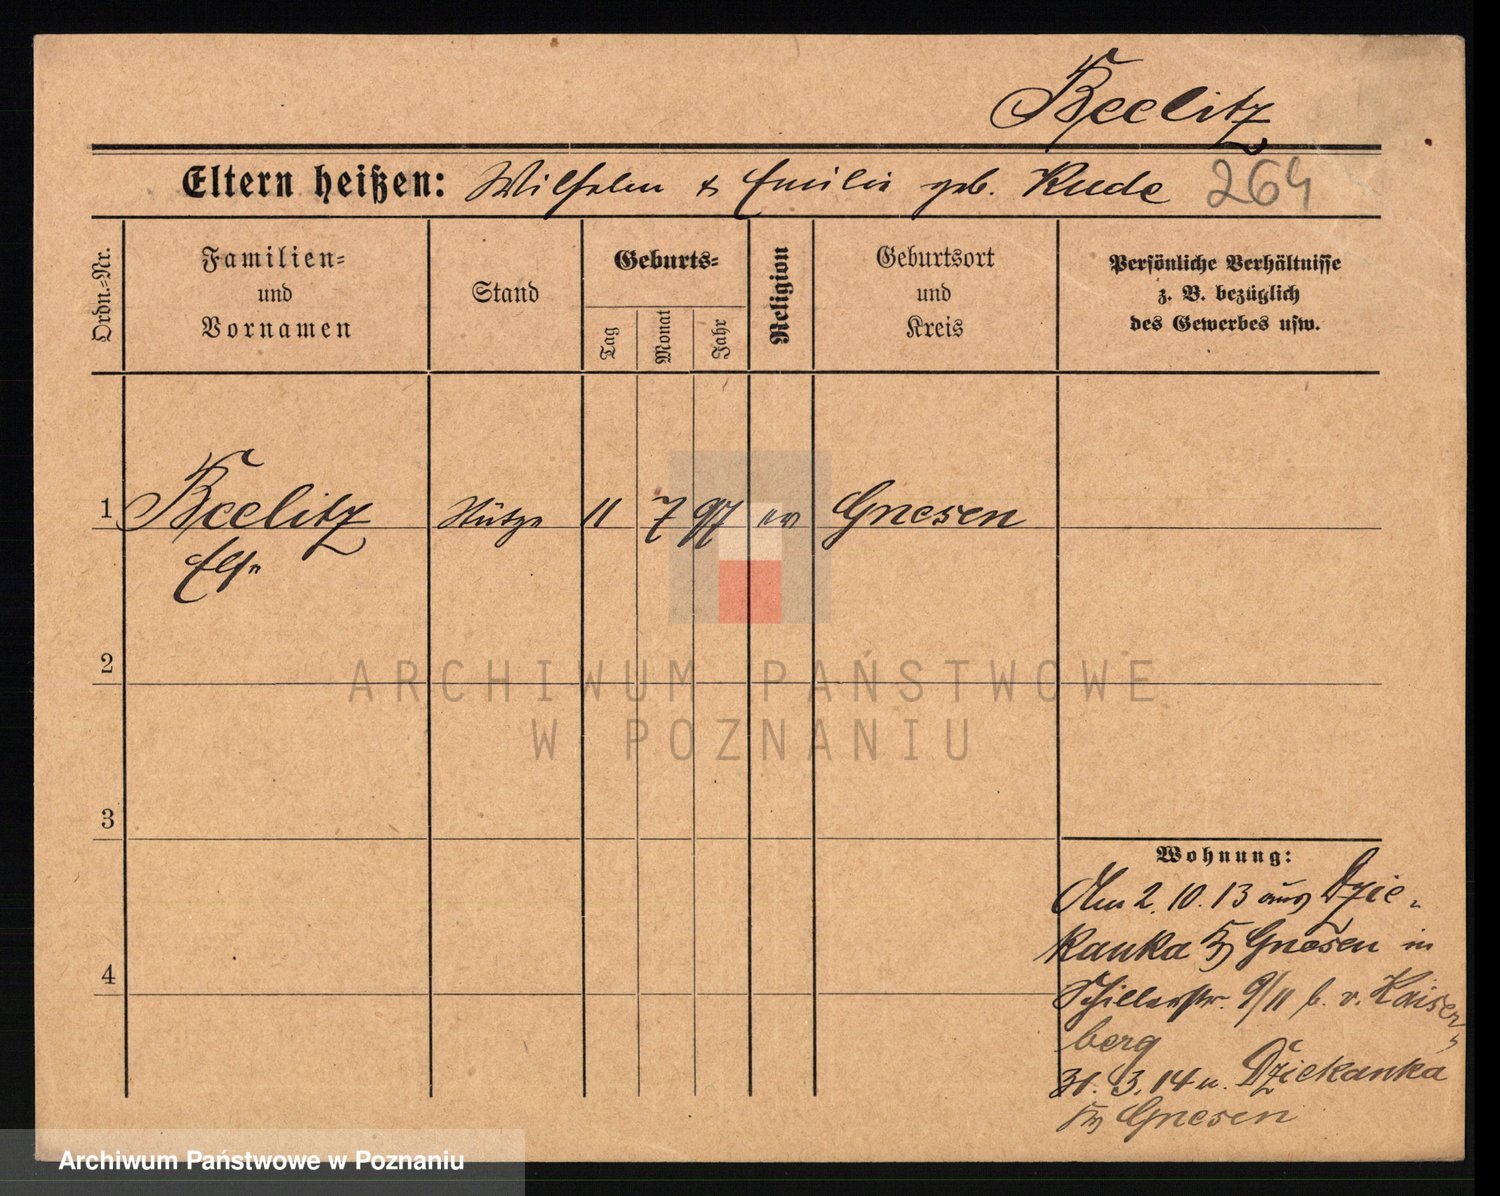 Beelitz
Eltern heißen: Wilhelm & Emilie geb. Rude 264
Ordn.-Nr.
Familien-
und
Vornamen
Stand
Geburts-
Tag
Monat
Jahr
Religion
Geburtsort
und
Kreis
Persönliche Verhältnisse
z. B. bezüglich
des Gewerbes usw.
1 Beelitz Stütze 11 7 97 ev Gnesen
Else
2
3
4
Wohnung:
Am 2. 10. 13 aus Dzie-
kanka Gnesen in
Schillerstr. 9/11 b. v. Kaiser-
berg
31. 3. 14 n. Dziekanka
Gnesen
ARCHIWUM PAŃSTWOWE
W POZNANIU
Archiwum Państwowe w Poznaniu